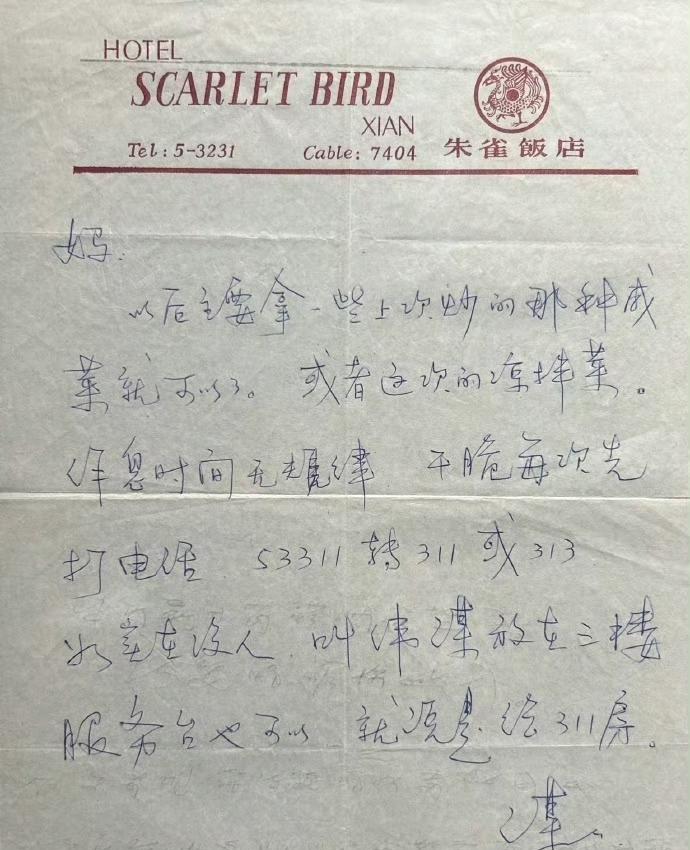 HOTEL
SCARLET BIRD
XIAN
Tel: 5-3231 Cable: 7404 朱雀飯店
妈:
以后主要拿一些上次炒的那种咸
菜就可以了。 或者这次的凉拌菜。
作息时间无规律 干脆每次先
打电话 53311 转 311 或 313
如实在没人 叫伟谋放在三楼
服务台也可以 就说是给 311 房。
谋